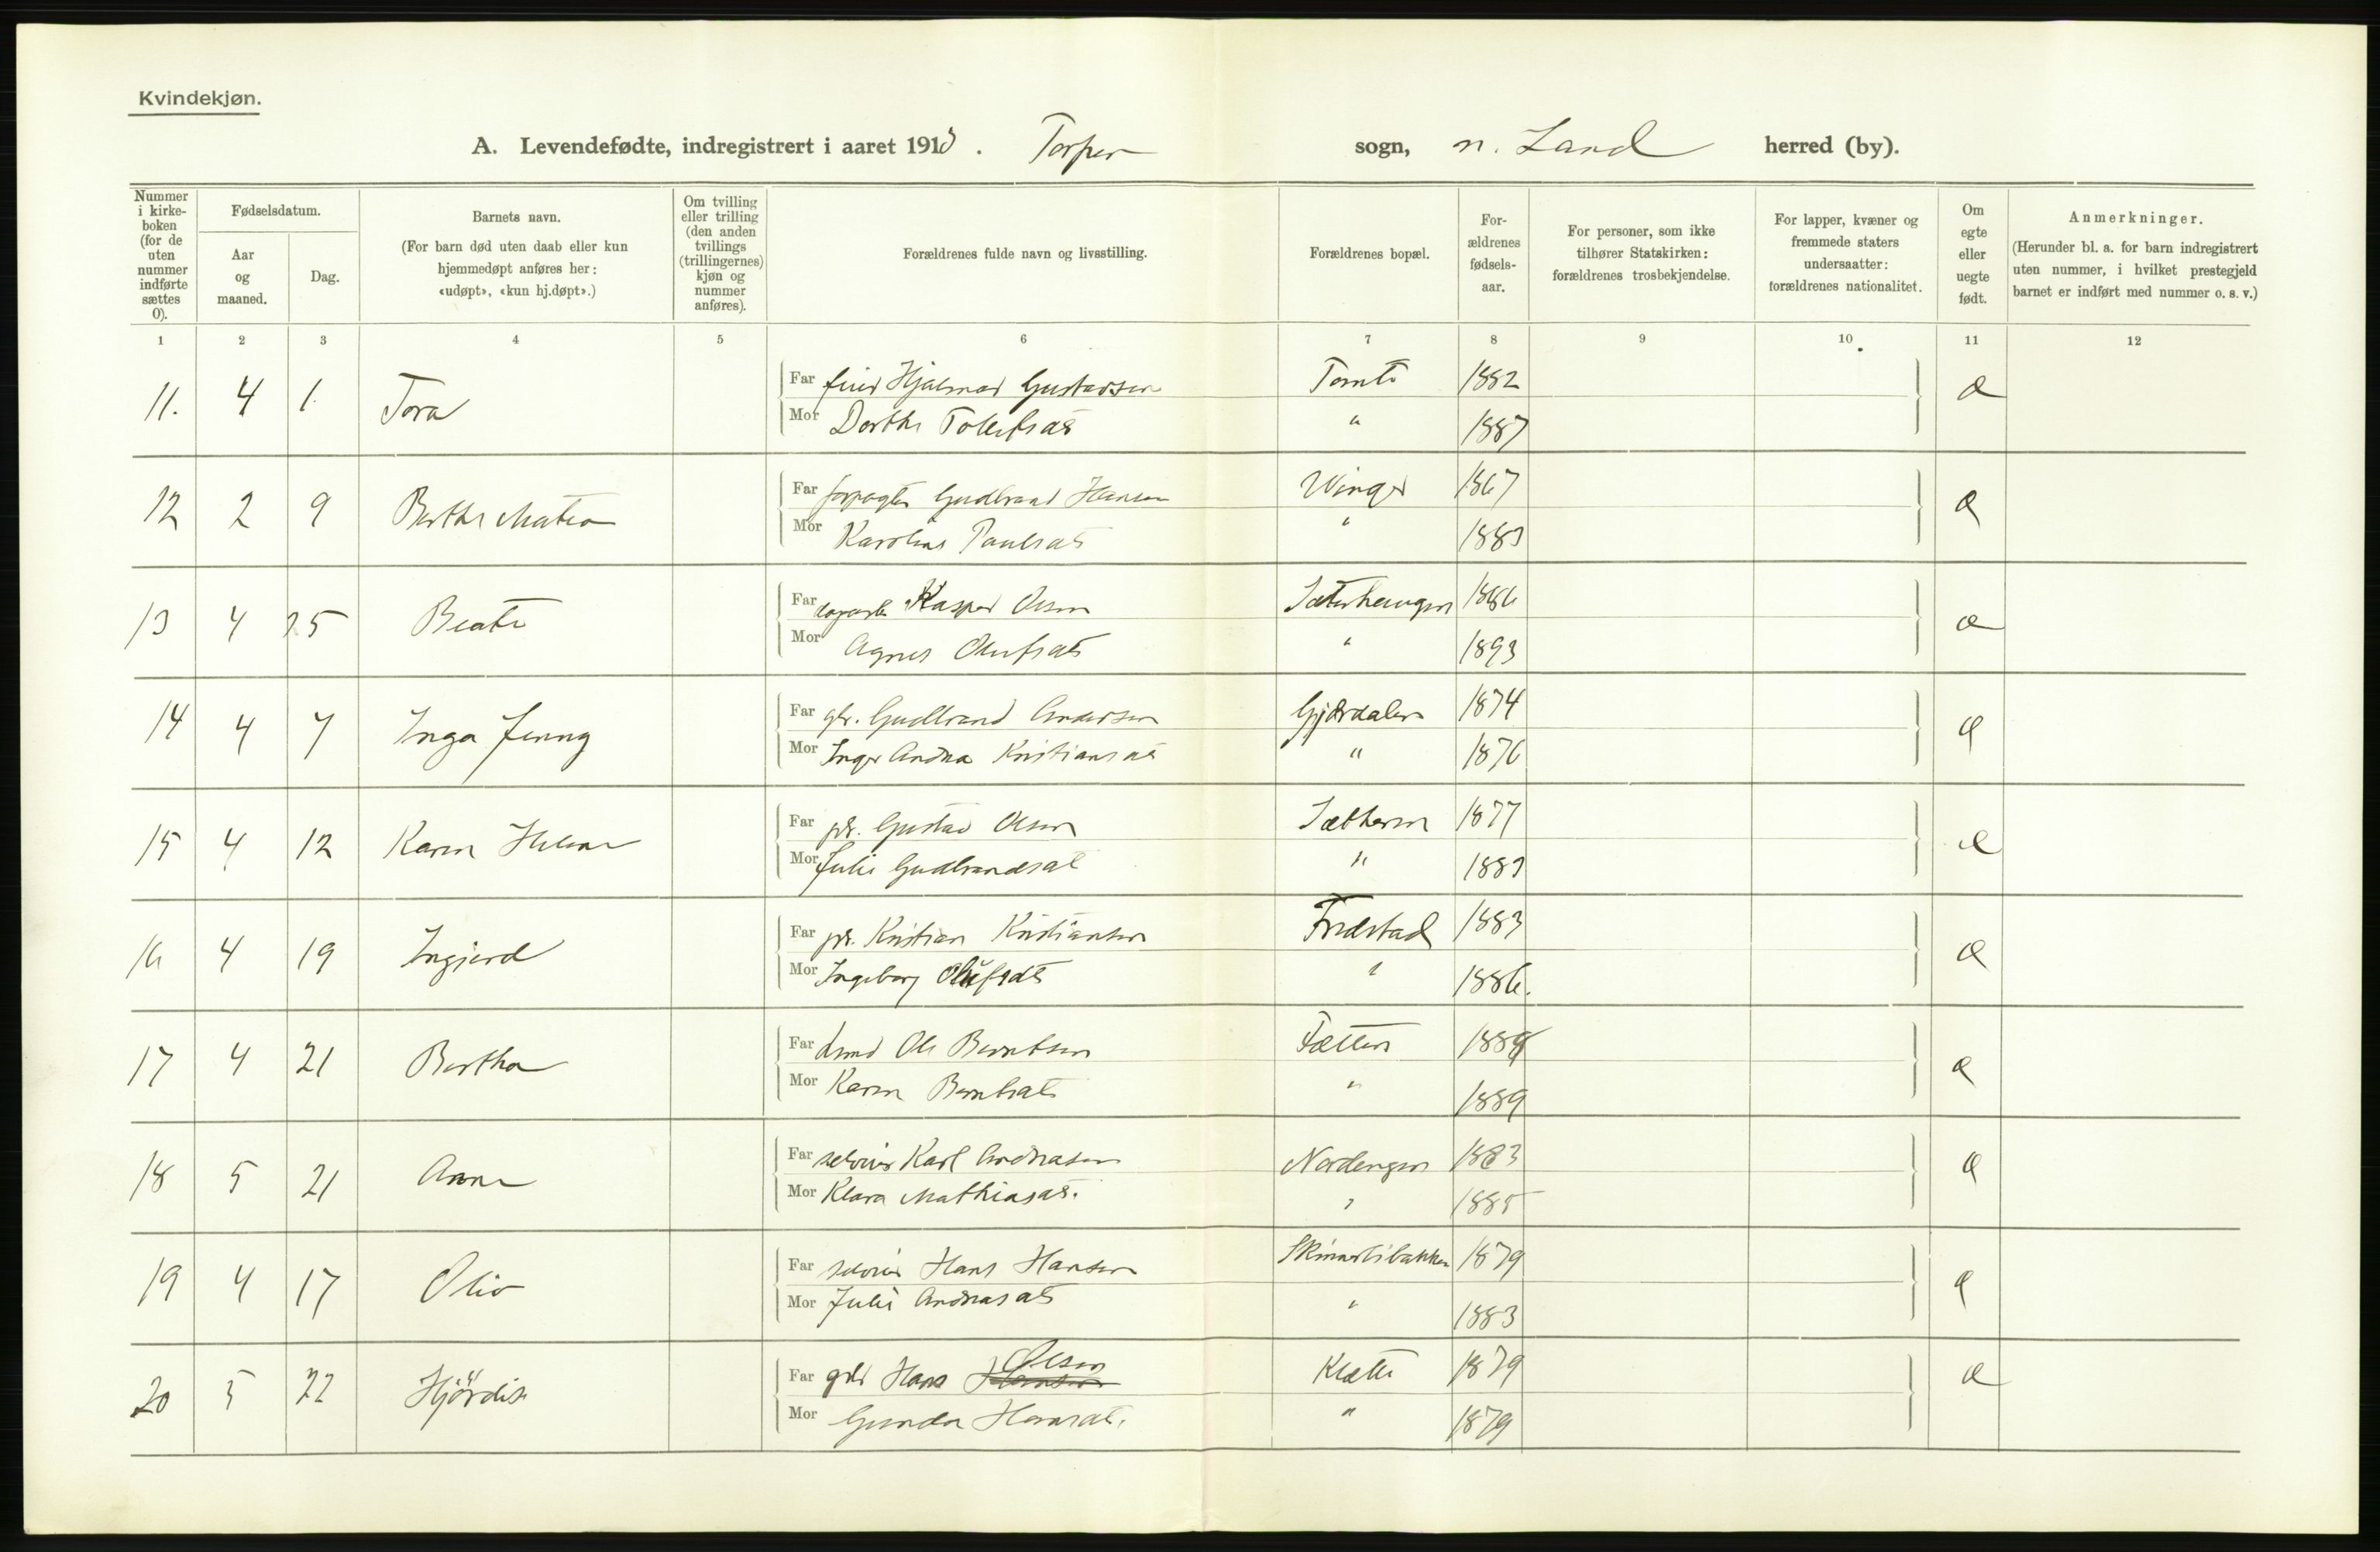 Kvindekjøn.
A. Levendefødte, indregistrert i aaret 1913. Torpen sogn, n. Land herred (by).
Nummer i kirke-boken (for de uten nummer indførte sættes 0).
Fødselsdatum.
Aar og maaned.
Dag.
Barnets navn.
(For barn død uten daab eller kun hjemmedøpt anføres her: «udøpt», «kun hj.døpt».)
Om tvilling eller trilling (den anden tvillings (trillingernes) kjøn og nummer anføres).
Forældrenes fulde navn og livsstilling.
Forældrenes bopæl.
For-ældrenes fødsels-aar.
For personer, som ikke tilhører Statskirken: forældrenes trosbekjendelse.
For lapper, kvæner og fremmede staters undersaatter: forældrenes nationalitet.
Om egte eller uegte født.
Anmerkninger.
(Herunder bl. a. for barn indregistrert uten nummer, i hvilket prestegjeld barnet er indført med nummer o. s. v.)
1 2 3 4 5 6 7 8 9 10 11 12
11. 4 1. Tora Far Hjalmar Gustavsen Tomte 1882 e
Mor Dorthe Tollefsdt " 1887
12 2 9 Berthe Matea Far forpagter Gudbrand Hansen Winger 1867 e
Mor Karoline Paulsdt " 1883
13 4 25 Beate Far Kasper Olsen Sæterhaugen 1886 e
Mor Agnes Olufsdt " 1893
14 4 7 Inga Jenny Far Gudbrand Andersen Gjærdalen 1874 e
Mor Inger Andrea Kristiansdt " 1876
15 4 12 Karen Helene Far Gustav Olsen Sætheren 1877 e
Mor Julie Gudbrandsdt " 1883
16 4 19 Ingjerd Far Kristian Kristiansen Fredstad 1883 e
Mor Ingeborg Olufsdt " 1886.
17 4 21 Bertha Far Ole Berntsen 1889 e
Mor Karen Berntsdt " 1889
18 5 21 Anne Far selveier Karl Andreasen Nordengen 1883 e
Mor Klara Mathiasdt. " 1885
19 4 17 Oliv Far selveier Hans Hansen Skinnerlibakken 1879 e
Mor Julie Andreasdt " 1883
20 5 22 Hjördis Far grdr Hans Hansen Olsen Klette 1879 e
Mor Gunda Hansdt. " 1879